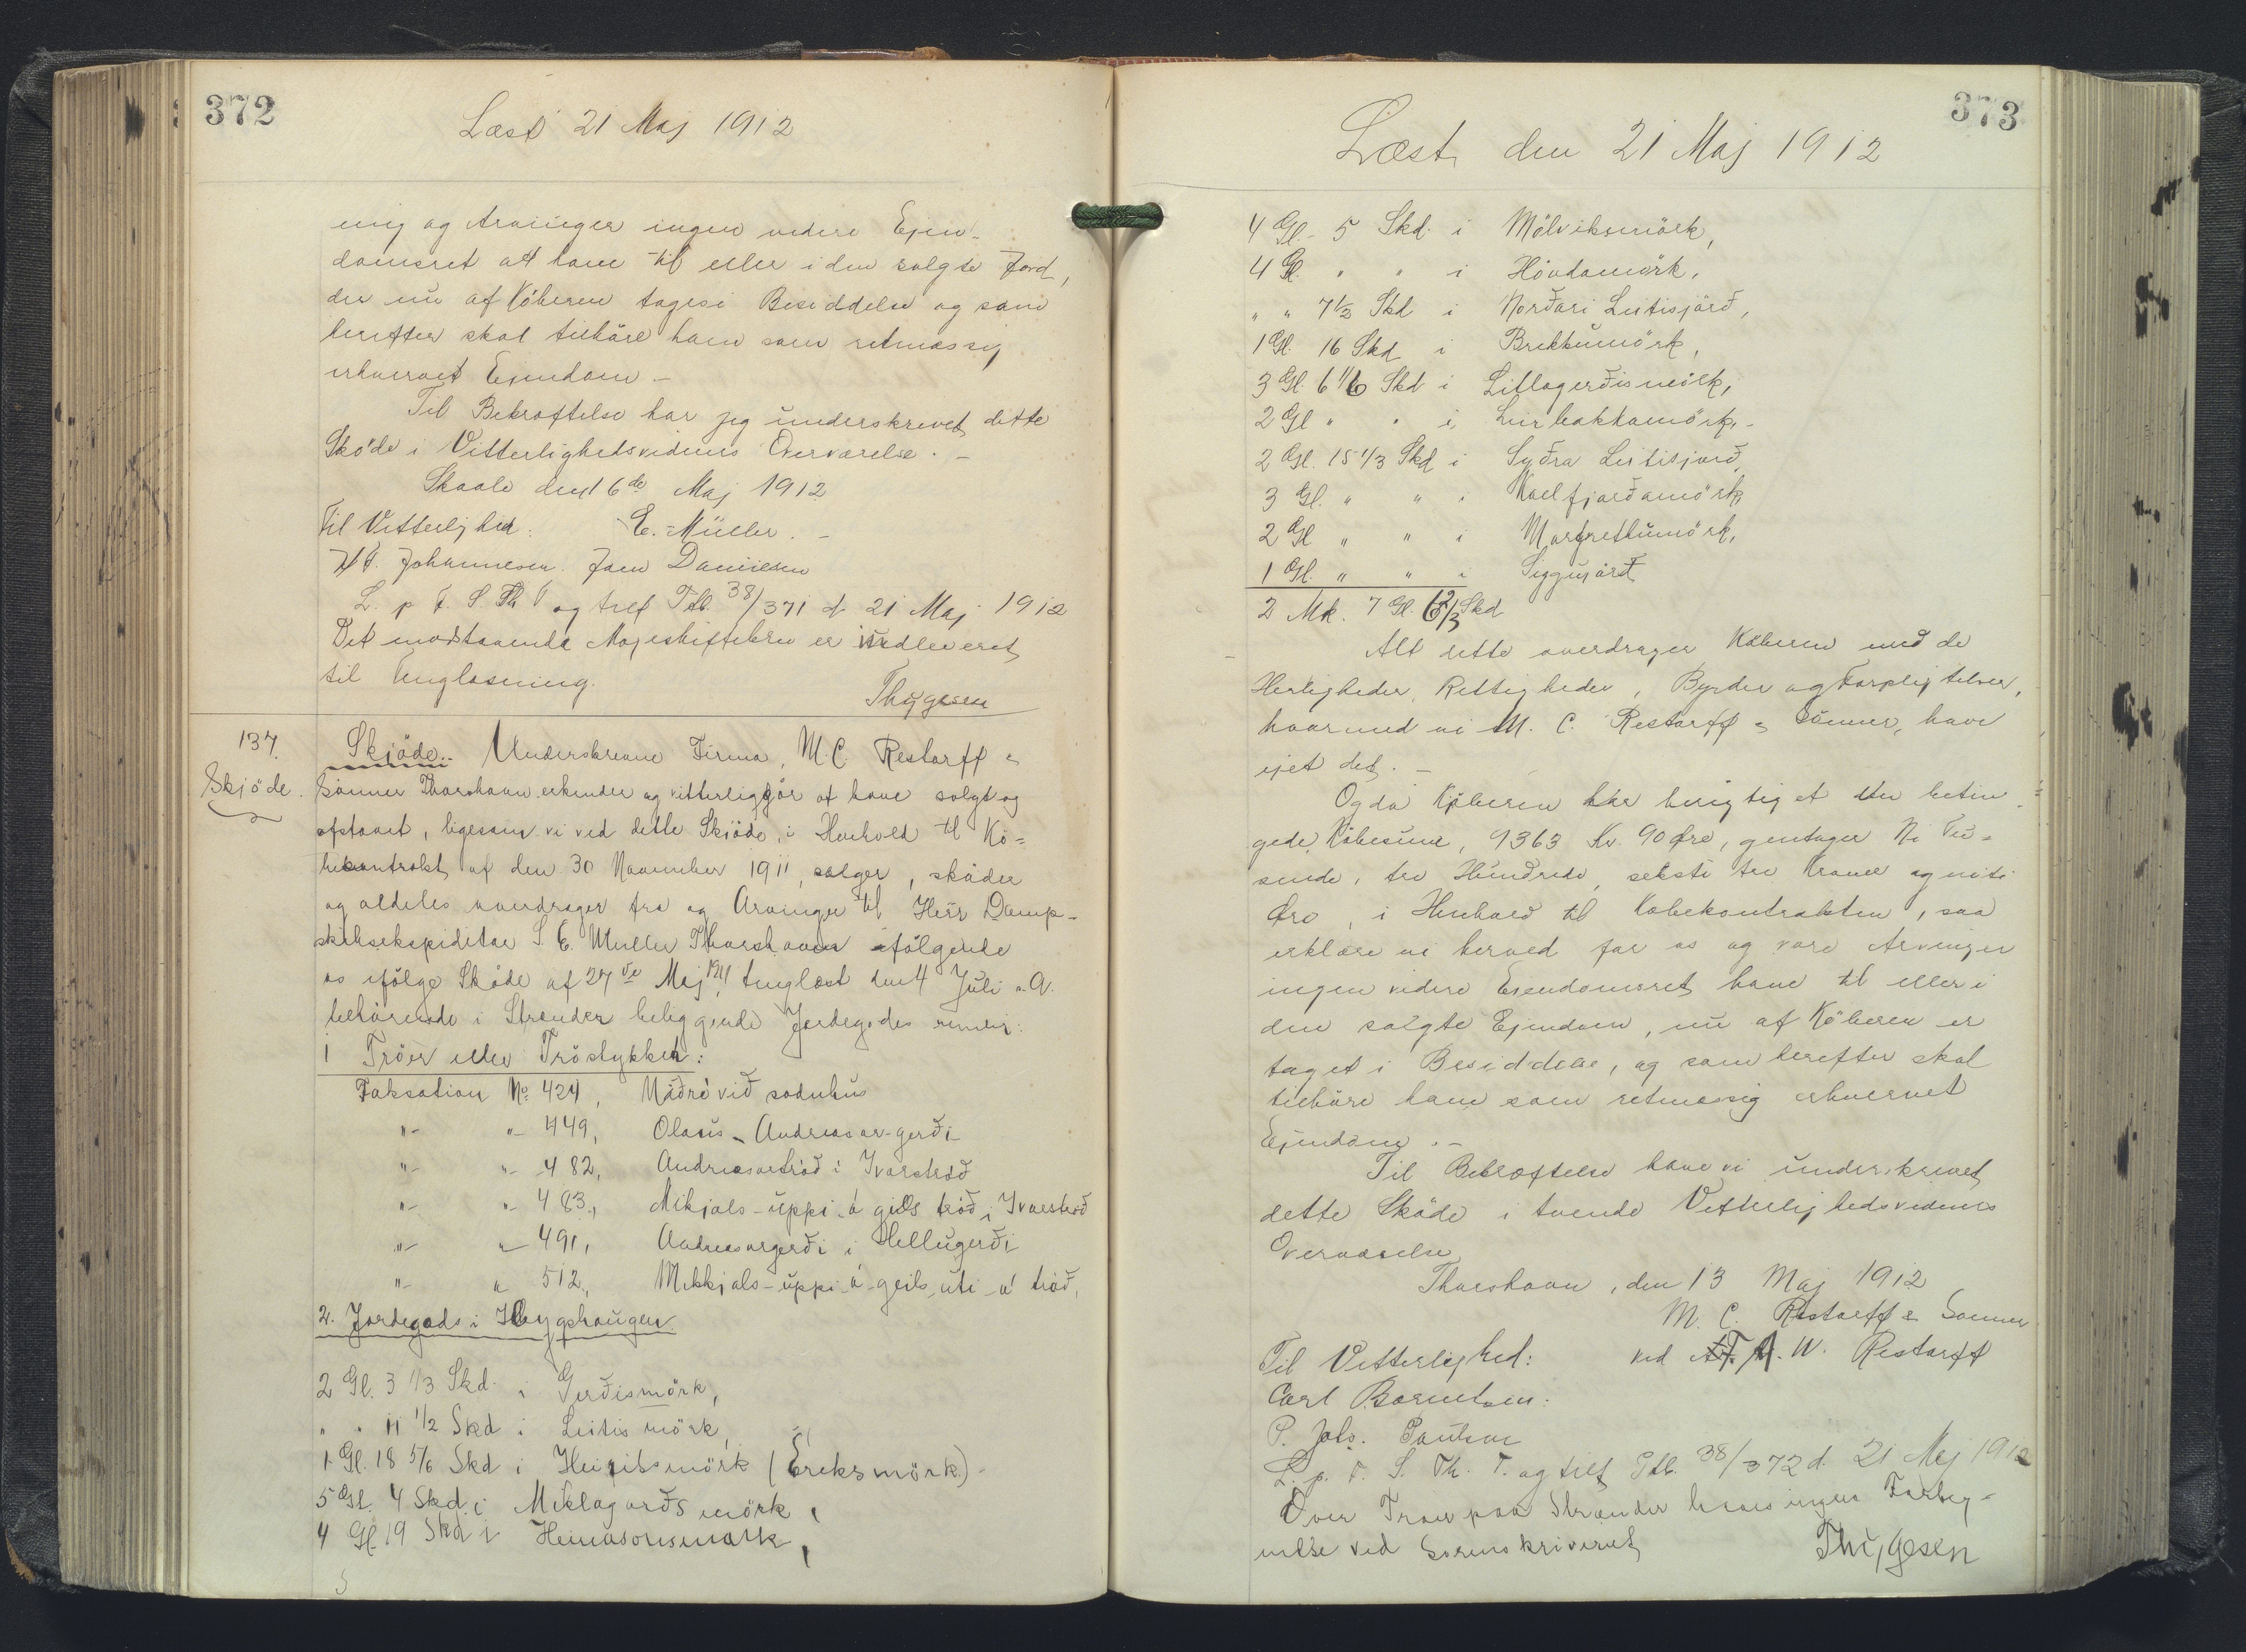 372
Læst 21 Maj 1912
mig og Arvinger ingen videre Ejen-
domsret at have til eller i den solgte Jord,
der nu af Köberen tages i Besiddelse og som
herefter skal tilhöre ham som retmæssig
erhvervet Ejendom -
Til Bekræftelse har jeg underskrevet dette
Sköde i Vitterlighedsvidners Overværelse. -
Skaale den 16de Maj 1912
Til Vitterlighed: E. Müller. -
Johannesen. Joen Danielsen
L. p. F. S. Th. og tilf Ptb. 38/371 d. 21 Maj 1912
Det modstaaende Mageskiftebrev er indleveret
til Tinglæsning.
Thygesen
137.
Skjöde.
Skjöde.. Underskrevne Firma, M. C. Restorff &
Sönner Thorshavn erkender og vitterliggjör at have solgt og
afstaaet, ligesom vi ved dette Skjöde, i Henhold til Kö-
bekontrakt af den 30 November 1911, sælger, sköder
og aldeles overdrager fra os og Arvinger til Herr Damp-
skibsekspeditör S. E. Müller Thorshavn følgende
os ifölge Sköde af 27de Maj 1911, tinglæst den 4 Juli s. A.
tilhörende i Strender beliggende Jordegods nemlig:
1 Tröer eller Tröstykker:
Taksation No. 424, Niðri við soduhus
"- "- 449, Olavis - Andreasar-gerði
"- "- 482, Andreasartröð i Ivarströð
"- "- 483., Mikjals-uppi-á geils tröð i Ivarströð
"- "- 491, Andreasargerði i Hellugerði
"- "- 512., Mikkjals-uppi-á-geils, uti-á tröð,
2. Jordegods i Hbygshaugen
2 Gl. 3 1/3 Skd. i Gerðismörk,
" " 11 1/2 Skd i Leitismörk,
1 Gl. 18 5/6 Skd i Heinismörk (Ereksmörk) -
5 Gl. 4 Skd. i Miklagarðsmörk,
4 Gl. 19 Skd i Heinasonsmörk,
373
Læst den 21 Maj 1912
4 Gl. 5 Skd. i Mölviksmörk,
4 Gl. " " i Hövdamörk,
" " 7 1/2 Skd i Norðari Leitisjörð,
1 Gl. 16 Skd i Brekkumörk,
3 Gl. 6 1/6 Skd i Litlagerðismörk,
2 Gl " " i Leirbakkamörk, -
2 Gl. 15 1/3 Skd i Syðra Leitisjorð,
3 Gl. " " i Kaelfjarðamörk,
2 Gl " " i Margrethumörk,
1 Gl. " " i Siggujörð
2 Mk. 7 Gl. 6 2/3 Skd
Alt dette overdrages Köberen med de
Herligheder, Rettigheder, Byrder og Forpligtelser,
hvormed vi M. C. Restorff & Sönner, have
ejet det. -
Og da Köberen har berigtiget den betin-
gede Köbesum, 9363 Kr. 90 Øre, gentager Ni Tu-
sende, tre Hundrede, seksti tre Kroner og niti
Øre, i Henhold til Köbekontrakten, saa
erklære vi herved for os og vore Arvinger
ingen videre Ejendomsret have til eller i
den solgte Ejendom, nu af Köberen er
taget i Besiddelse, og som herefter skal
tilhöre ham som retmæssig erhvervet
Ejendom. -
Til Bekræftelse have vi underskrevet
dette Sköde i tvende Vitterlighedsvidners
Overværelse
Thorshavn, den 13 Maj 1912
M. C. Restorff & Sönner
Til Vitterlighed: ved A. W. Restorff
Carl Berentsen.
P. Johs. Poulsen
L. p. F. S. Th. T. og tilf Ptb. 38/372 d. 21 Maj 1912
Over Tröer paa Strender haves ingen Forteg-
nelse ved Sorenskriveriet
Thygesen